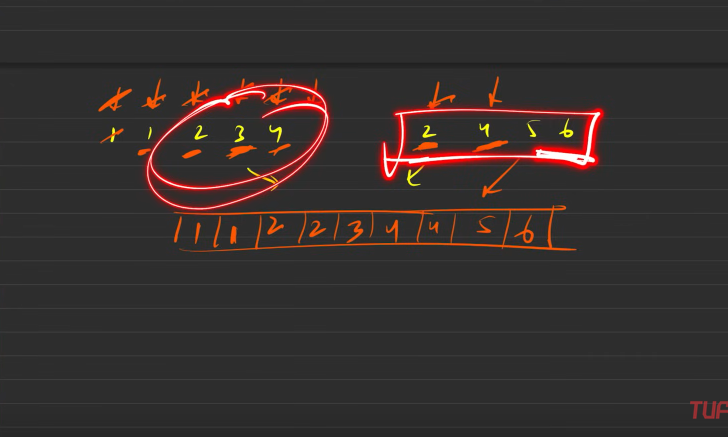 1 1 2 3 4 2 4 5 6
1 1 2 2 3 4 4 5 6
TUF